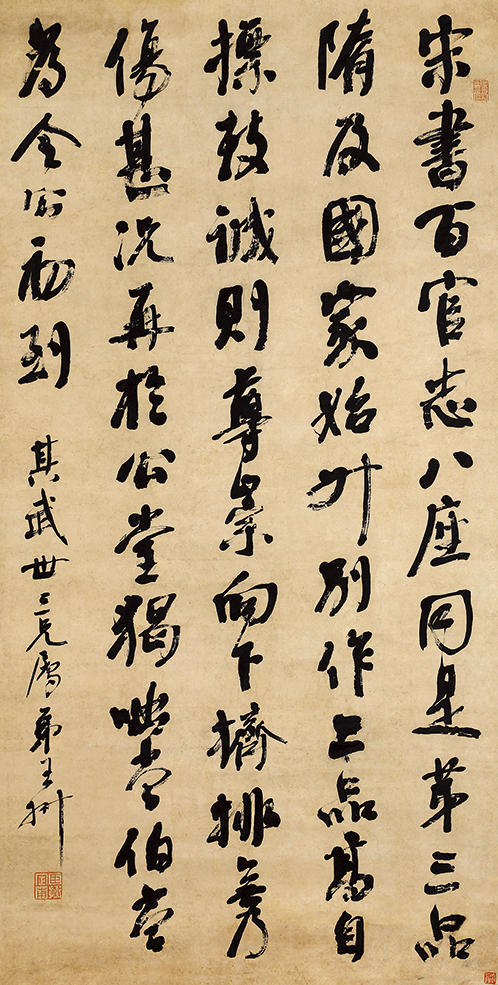 宋書百官志八座同是第三品
隋及國家始升別作二品高自
摽致誠則尊崇向下擠排無乃
傷甚況再於公堂猲咄常伯當
為令公初到
其武世三兄屬弟王澍